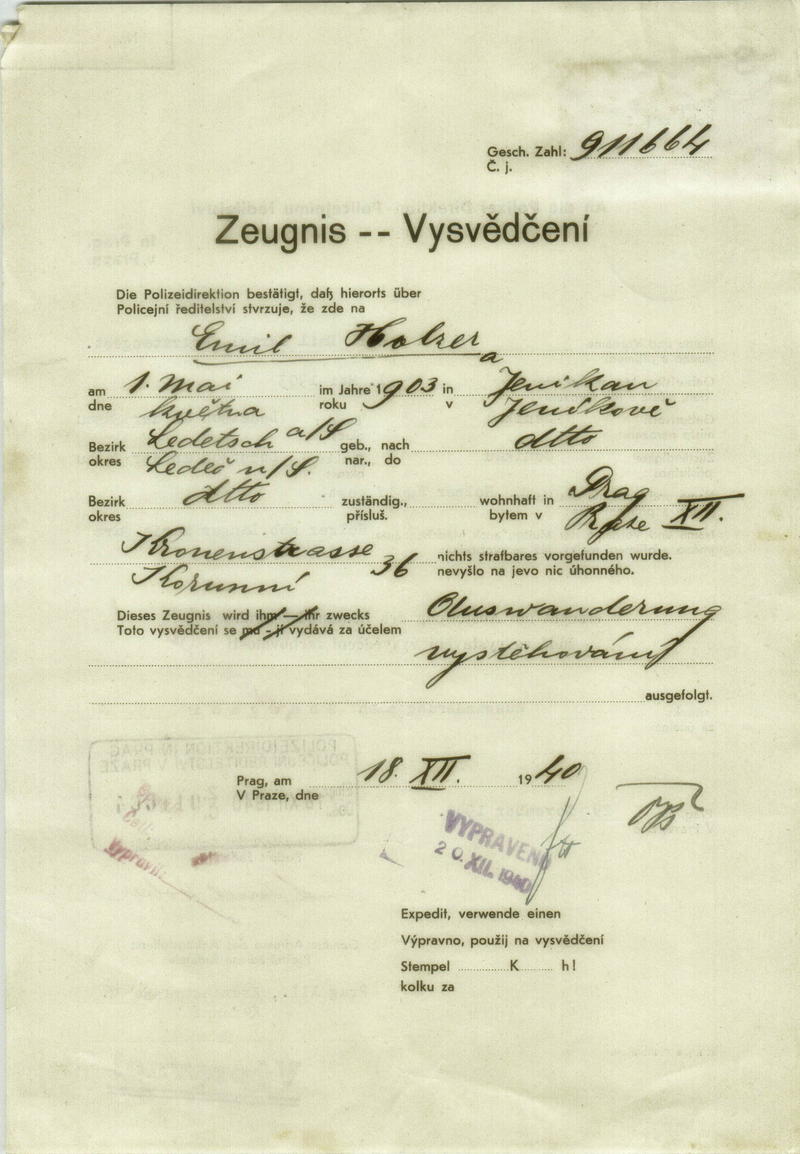 Gesch. Zahl: 911664
Č. j.
Zeugnis -- Vysvědčení
Die Polizeidirektion bestätigt, daß hierorts über
Policejní ředitelství stvrzuje, že zde na
Emil Holzer
a
am 1. Mai im Jahre 1903 in Jenikau
dne května roku v Jeníkově
Bezirk Ledetsch a/S geb., nach dtto
okres Ledeč n/S. nar., do
Bezirk dtto zuständig., wohnhaft in Prag
okres přísluš. bytem v Praze XII.
Kronenstrasse 36 nichts strafbares vorgefunden wurde.
Korunní nevyšlo na jevo nic úhonného.
Dieses Zeugnis wird ihm — ihr zwecks Auswanderung
Toto vysvědčení se mu - jí vydává za účelem
vystěhování
ausgefolgt.
Prag, am 18. XII. 1940
V Praze, dne
VYPRAVENO
20. XII. 1940
Expedit, verwende einen
Výpravno, použij na vysvědčení
Stempel K h!
kolku za